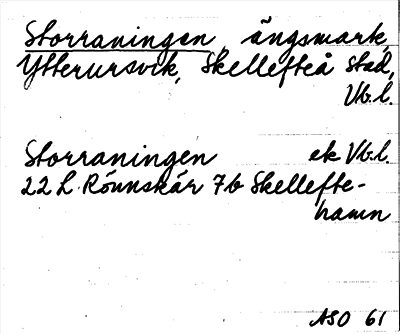 Storraningen, ängsmark,
Ytterursvik, Skellefteå stad,
Vb.l.
Storraningen ek Vb.l.
22 L Rönnskär 7b Skellefte-
hamn
ASO 61